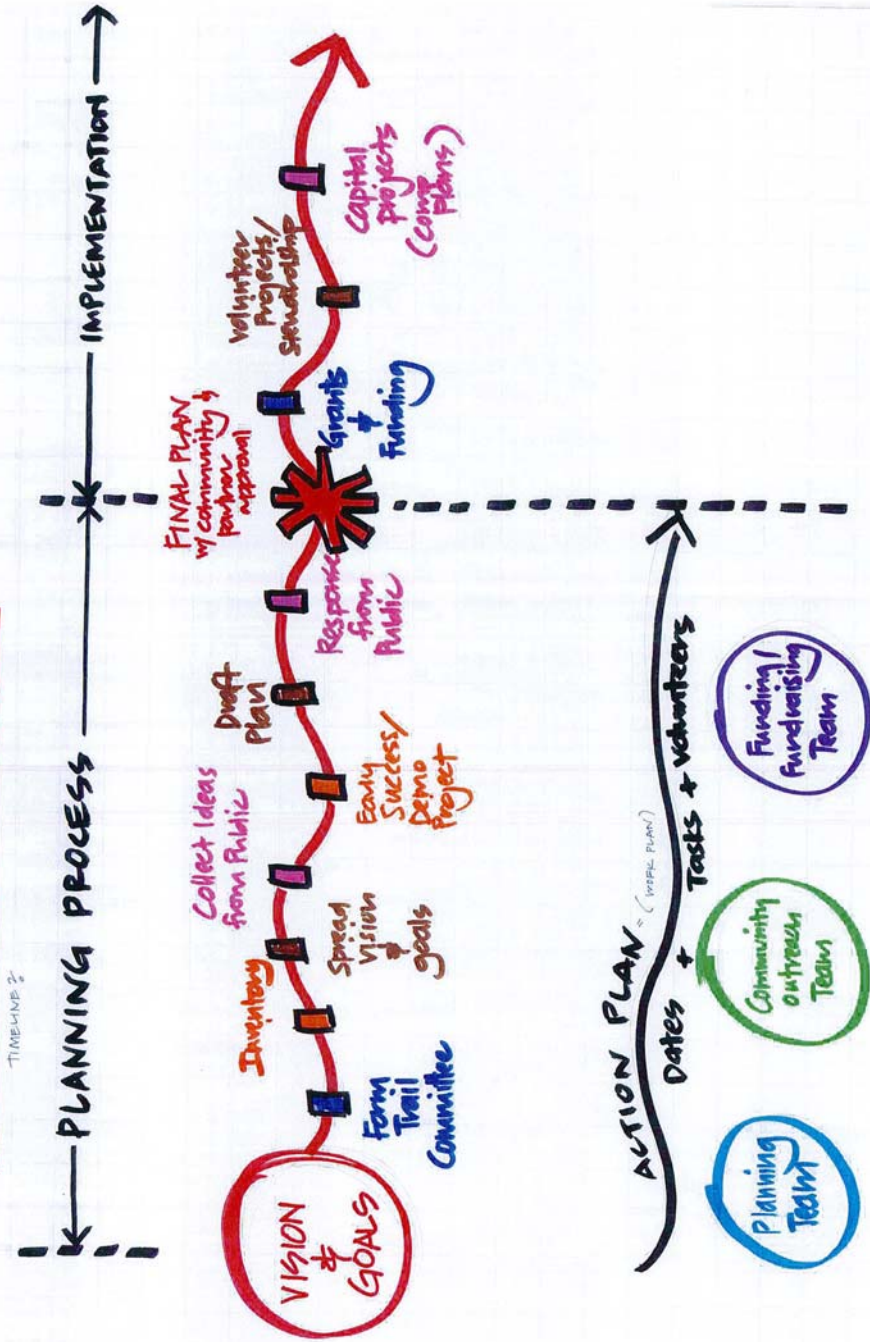 TIMELINE?
PLANNING PROCESS
IMPLEMENTATION
VISION
&
GOALS
Form
Trail
Committee
Inventory
Spread
Vision
&
goals
Collect Ideas
from Public
Early
Success/
Demo
Project
Draft
Plan
Response
from
Public
FINAL PLAN
w/ community &
partner
approval
Grants
&
Funding
Volunteer
Projects/
Stewardship
Capital
projects
(comp
Plans)
ACTION PLAN = (WORK PLAN)
Dates + Tasks + Volunteers
Planning
Team
Community
outreach
Team
Funding/
Fundraising
Team